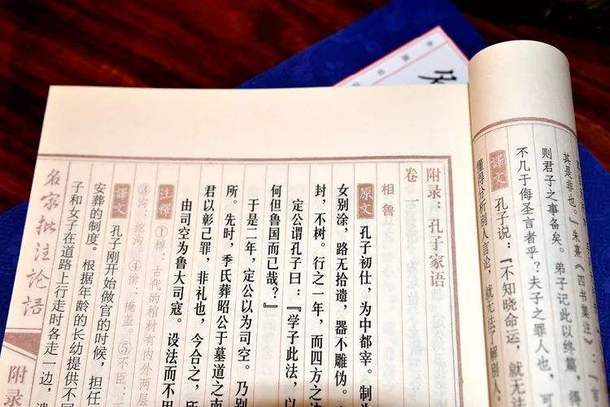 其是非也。』朱熹《四书集注》：
则君子之事备矣。弟子记此以终篇，得
不几于侮圣言者乎？夫子之罪人也，可
译文 孔子说：『不知晓命运，就无法
懂得分析别人言论，就无法了解别人。
附录：孔子家语
卷一
相鲁
原文 孔子初仕，为中都宰。制
女别涂，路无拾遗，器不雕伪。
封，不树。行之一年，而四方之
定公谓孔子曰：『学子此法，以
何但鲁国而已哉？』
于是二年，定公以为司空。乃别
所。先时，季氏葬昭公于墓道之南
君以彰己罪，非礼也，今合之，所
由司空为鲁大司寇。设法而不用
注释 古代的棺材有内外两层
掩盖 ⑤不臣：
译文 孔子刚开始做官的时候，担任
安葬的制度。根据年龄的长幼提供不同
子和女子在道路上行走时各走一边，遗
名家批注论语
附录